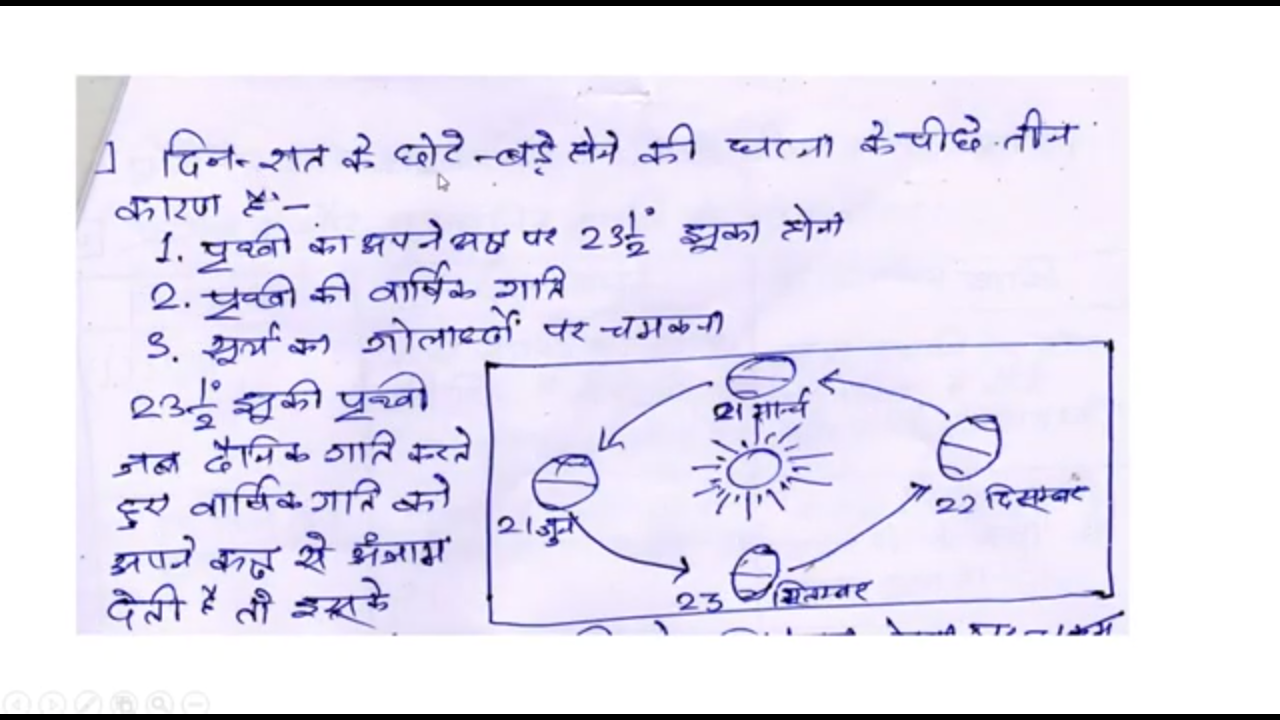 दिन-रात के छोटे-बड़े होने की घटना के पीछे तीन
कारण हैं:-
1. पृथ्वी का अपने अक्ष पर 23½° झुका होना
2. पृथ्वी की वार्षिक गति
3. सूर्य का गोलार्ध्दों पर चमकना
23½° झुकी पृथ्वी
जब दैनिक गति करते
हुए वार्षिक गति को
अपने कक्ष से अंजाम
देती है तो इसके
21 मार्च
21 जुन
22 दिसम्बर
23 सितम्बर